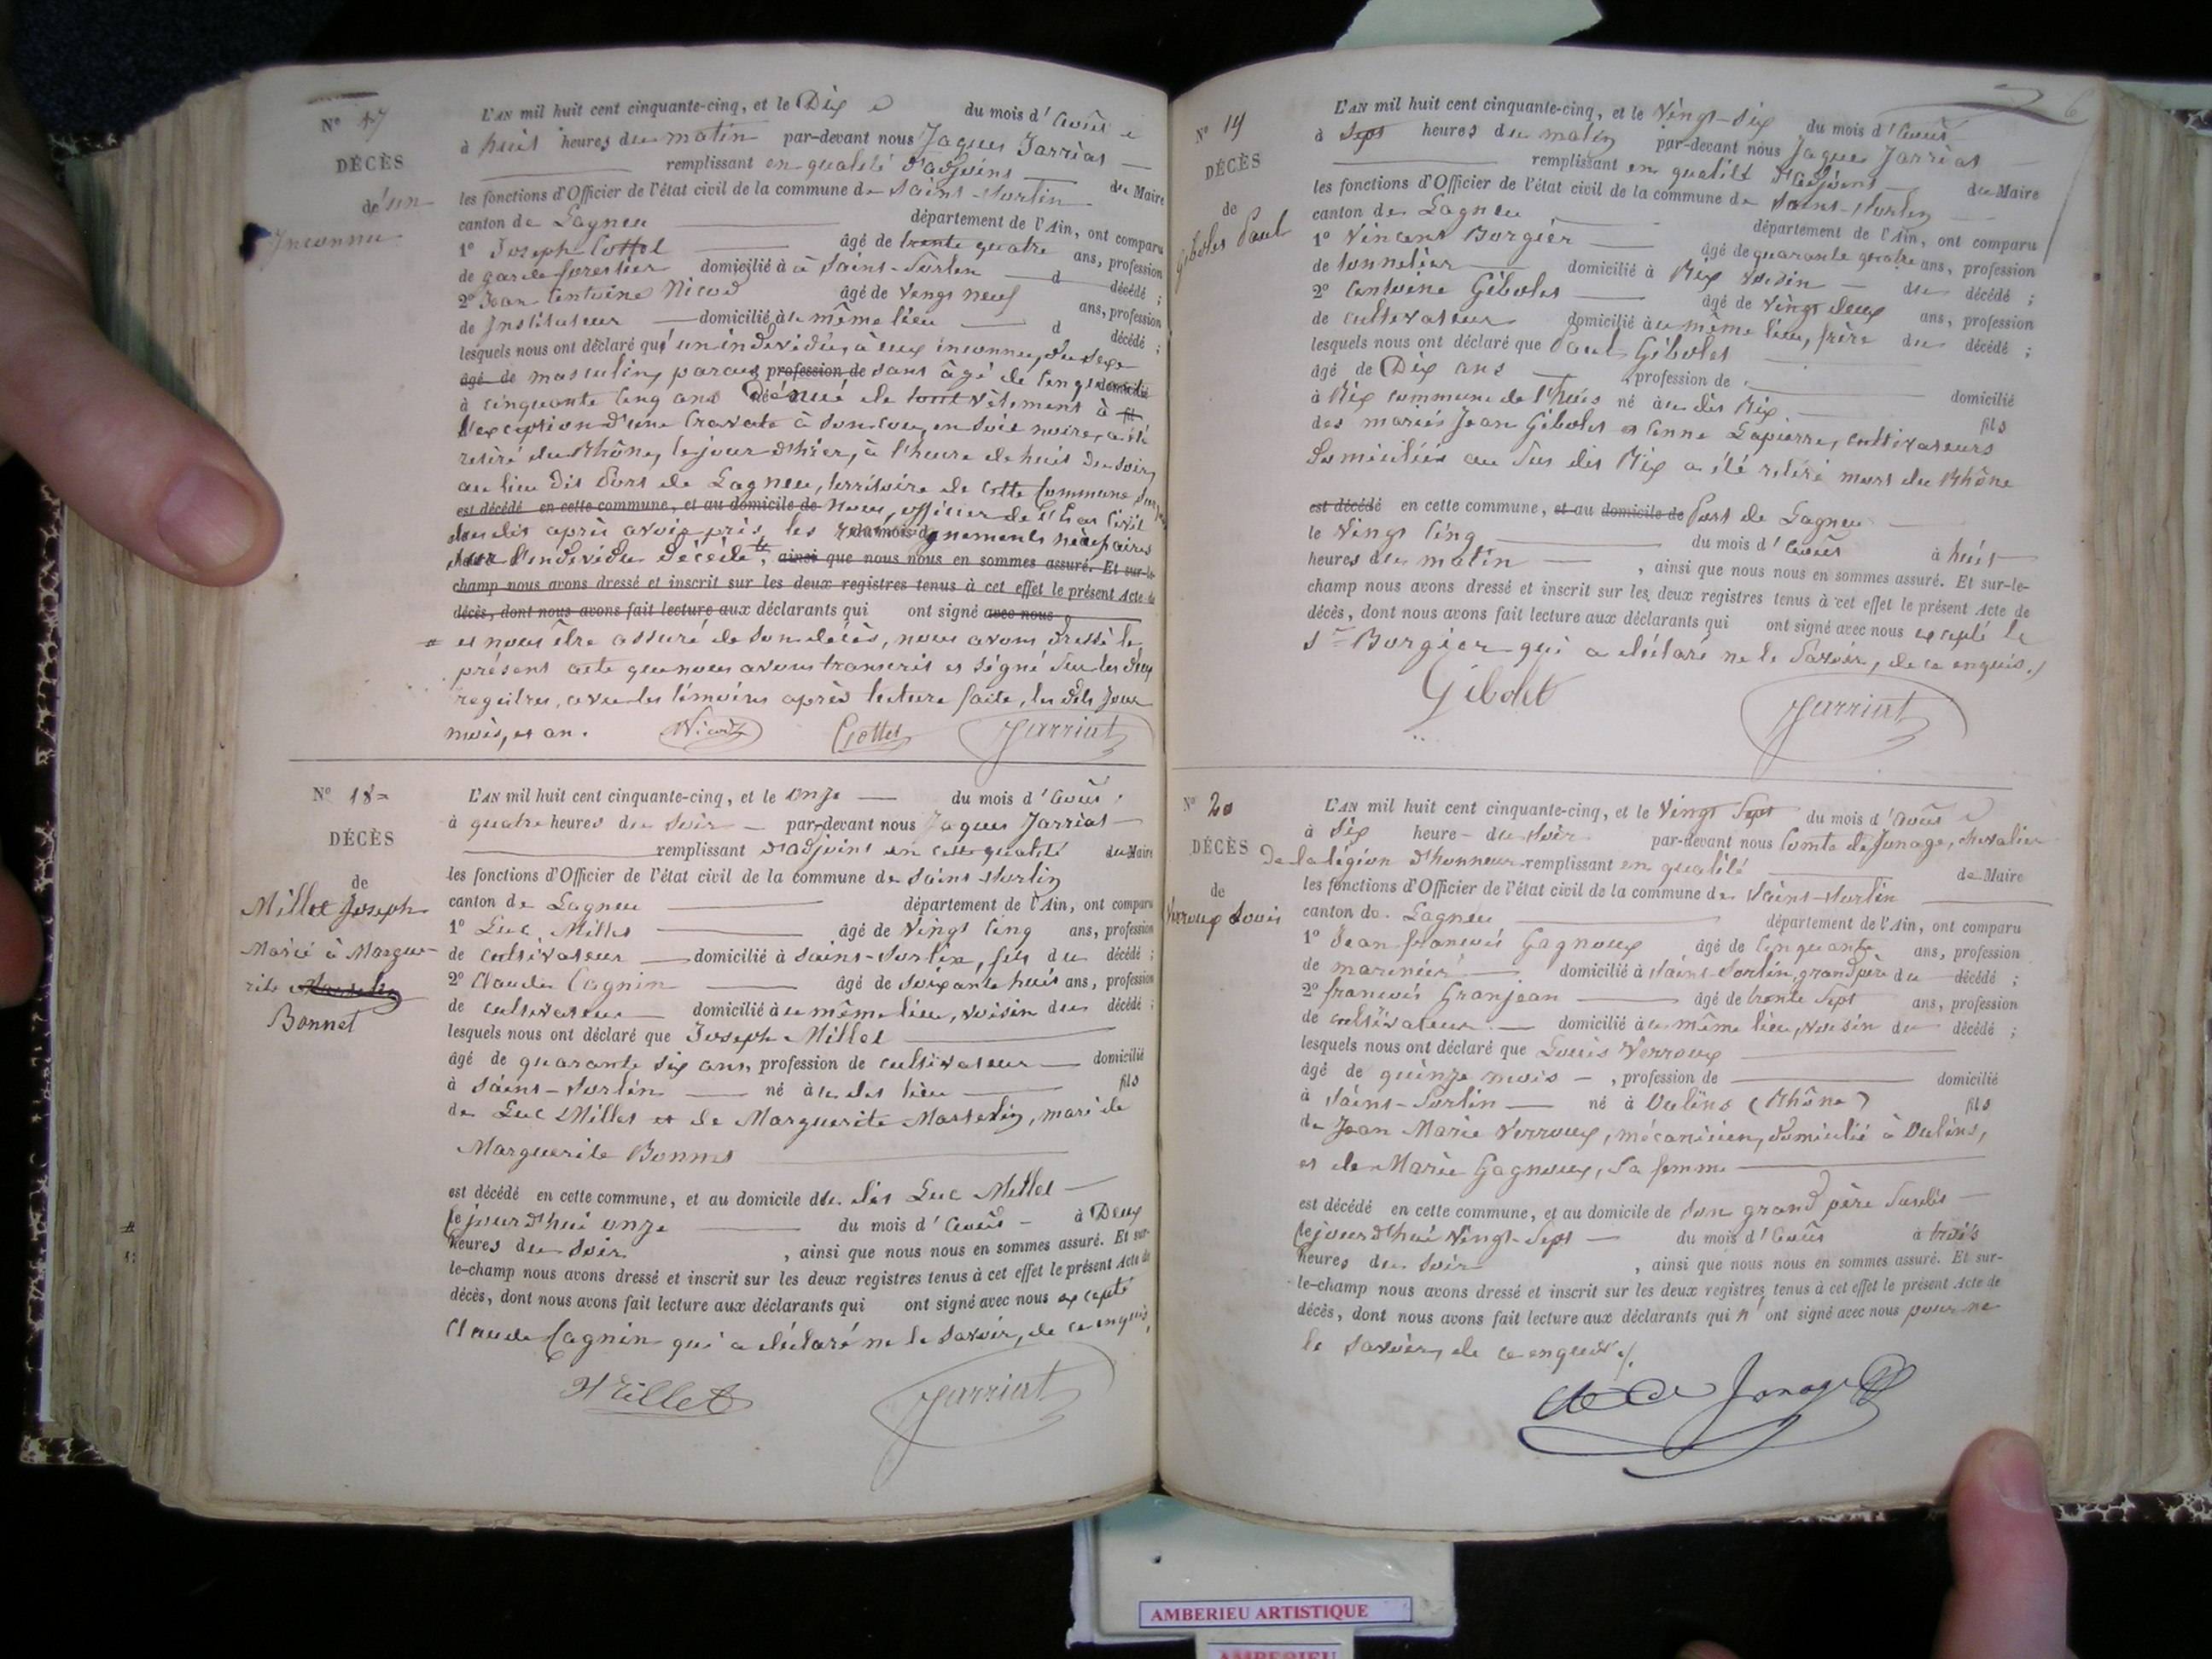 N° 17
DÉCÈS
de un
Inconnu
L'AN mil huit cent cinquante-cinq, et le Dix du mois d'Août
à huit heures du matin par-devant nous Jaques Jarriat
remplissant en qualité d'adjoint du Maire
les fonctions d'Officier de l'état civil de la commune de Saint-Sorlin
canton de Lagneu département de l'Ain, ont comparu
1° Joseph Cottet âgé de trente quatre ans, profession
de garde forestier domicilié à à Saint-Sorlin d décédé ;
2° Jean Antoine Nicod âgé de vingt neuf ans, profession
de Instituteur domicilié à u même lieu d décédé ;
lesquels nous ont déclaré qu'un individu, à eux inconnu, du sexe
âgé de masculin, profession de dans âgé de cinq domicilié
à cinquante cinq ans dénué de tout vêtement à fil
l'exception d'une Cravate à son cou, en soie noire, a été
retiré du Rhône, le jour d'hier, à l'heure de huit du soir,
au lieu dit Port de Lagneu, territoire de cette Commune
est décédé en cette commune, et au domicile de nous, officier de l'Etat Civil
après avoir pris les nécessaires
l'individu décédé, ainsi que nous nous en sommes assuré. Et sur-le-
champ nous avons dressé et inscrit sur les deux registres tenus à cet effet le présent Acte de
décès, dont nous avons fait lecture aux déclarants qui ont signé avec nous
et nous être assuré de son décès, nous avons dressé le
présent acte que nous avons transcrit et signé sur les deux
registres, avec les témoins après lecture faite, les dits jour
mois, et an.
Nicod Cottet Jarriat
N° 18
DÉCÈS
de
Millet Joseph
Marié à Margue-
rite
Bonnet
L'AN mil huit cent cinquante-cinq, et le onze du mois d'Août
à quatre heures du soir par-devant nous Jaques Jarriat
remplissant d'adjoint en cette qualité du Maire
les fonctions d'Officier de l'état civil de la commune de Saint-Sorlin
canton de Lagneu département de l'Ain, ont comparu
1° Luc Millet âgé de vingt cinq ans, profession
de cultivateur domicilié à Saint-Sorlin, fils du décédé ;
2° Claude Cagnin âgé de soixante huit ans, profession
de cultivateur domicilié à u même lieu, voisin du décédé ;
lesquels nous ont déclaré que Joseph Millet
âgé de quarante six ans, profession de cultivateur domicilié
à Saint-Sorlin né à u dit lieu fils
de Luc Millet et de Marguerite Masselin, mari de
Marguerite Bonnet
est décédé en cette commune, et au domicile du dit Luc Millet
le jourd'hui onze du mois d'Août à Deux
heures du soir, ainsi que nous nous en sommes assuré. Et sur-
le-champ nous avons dressé et inscrit sur les deux registres tenus à cet effet le présent Acte de
décès, dont nous avons fait lecture aux déclarants qui ont signé avec nous excepté
Claude Cagnin qui a déclaré ne le savoir, de ce enquis,
Millet Jarriat
6
N° 19
DÉCÈS
de
Gibolet Paul
L'AN mil huit cent cinquante-cinq, et le Vingt-six du mois d'Août
à Sept heures du matin par-devant nous Jaques Jarriat
remplissant en qualité d'Adjoint du Maire
les fonctions d'Officier de l'état civil de la commune de Saint-Sorlin
canton de Lagneu département de l'Ain, ont comparu
1° Vincent Borgier âgé de quarante quatre ans, profession
de tonnelier domicilié à Rix voisin du décédé ;
2° Antoine Gibolet âgé de vingt deux ans, profession
de cultivateur domicilié à u même lieu, frère du décédé ;
lesquels nous ont déclaré que Paul Gibolet
âgé de Dix ans profession de domicilié
à Rix commune de l'huis né à u dit Rix. fils
des mariés Jean Gibolet et Anne Lapierre, cultivateurs
domiciliés au sus dit Rix a été retiré mort du Rhône
est décédé en cette commune, et au domicile de Port de Lagneu
le vingt cinq du mois d'Août à huit
heures du matin, ainsi que nous nous en sommes assuré. Et sur-le-
champ nous avons dressé et inscrit sur les deux registres tenus à cet effet le présent Acte de
décès, dont nous avons fait lecture aux déclarants qui ont signé avec nous excepté le
Sr Borgier qui a déclaré ne le savoir, de ce enquis./
Gibolet Jarriat
N° 20
DÉCÈS
de
Verroux Louis
L'AN mil huit cent cinquante-cinq, et le Vingt Sept du mois d'Août
à Six heure du soir par-devant nous Comte de Jonage, chevalier
De la légion d'honneur remplissant en qualité de Maire
les fonctions d'Officier de l'état civil de la commune de Saint-Sorlin
canton de Lagneu département de l'Ain, ont comparu
1° Jean francois Gagnoux âgé de cinquante ans, profession
de marinier domicilié à Saint-Sorlin, grand père du décédé ;
2° francois Granjean âgé de trente sept ans, profession
de cultivateur domicilié à u même lieu, voisin du décédé ;
lesquels nous ont déclaré que Louis Verroux
âgé de quinze mois, profession de domicilié
à Saint-Sorlin né à Oulins (Rhône) fils
de Jean Marie Verroux, mécanicien, domicilié à Oulins,
et de Marie Gagnoux, sa femme
est décédé en cette commune, et au domicile de son grand père susdit
le jourd'hui Vingt-Sept du mois d'Août à trois
heures du soir, ainsi que nous nous en sommes assuré. Et sur-
le-champ nous avons dressé et inscrit sur les deux registres tenus à cet effet le présent Acte de
décès, dont nous avons fait lecture aux déclarants qui n'ont signé avec nous pour ne
le savoir, de ce enquis./.
de Jonage
AMBERIEU ARTISTIQUE
AMBERIEU